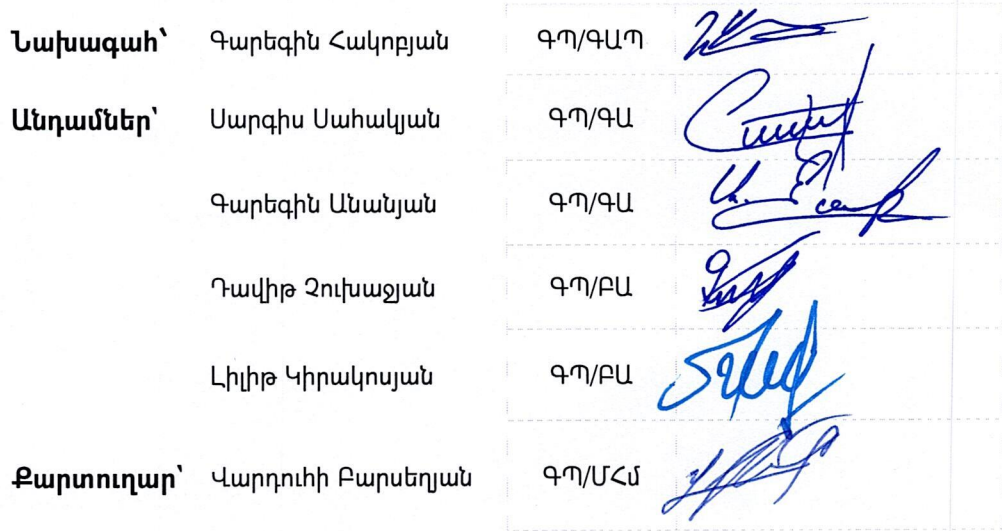 Նախագահ՝ Գարեգին Հակոբյան ԳՊ/ԳԱՊ
Անդամներ՝ Սարգիս Սահակյան ԳՊ/ԳԱ
Գարեգին Անանյան ԳՊ/ԳԱ
Դավիթ Չուխաջյան ԳՊ/ԲԱ
Լիլիթ Կիրակոսյան ԳՊ/ԲԱ
Քարտուղար՝ Վարդուհի Բարսեղյան ԳՊ/ՄՀմ